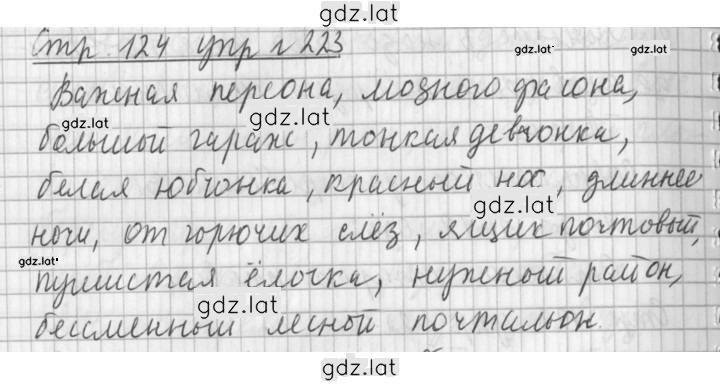 gdz.lat
Стр 124 упр г 223
gdz.lat
gdz.lat
Важная персона, модного фасона,
gdz.lat
gdz.lat
большый гараж, тонкая девчонка,
белая юбчонка, красный нос, длиннее
gdz.lat
ночи, от горючих слёз, ящик почтовый,
gdz.lat
пушистая ёлочка, нужный район,
gdz.lat
бессменный лесной почтальон.
gdz.lat